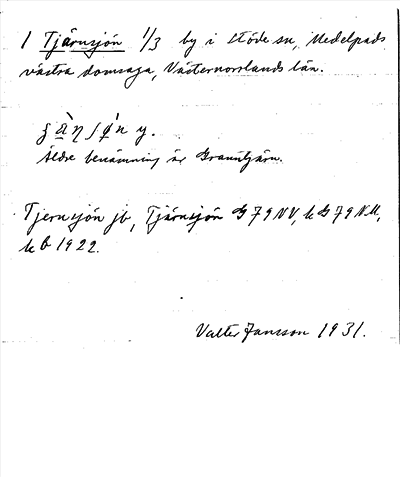 1 Tjärnsjön 1/3 by i Stöde sn, Medelpads
västra domsaga, Västernorrlands län.
Äldre benämning är Granntjärn.
Tjernsjön jb, Tjärnsjön G 79 NV, k G 79 NV,
kb 1922.
Valter Jansson 1931.